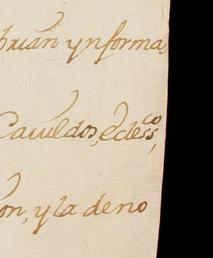 brian ynforma,
Cauildos, edess,co
on, y la de no